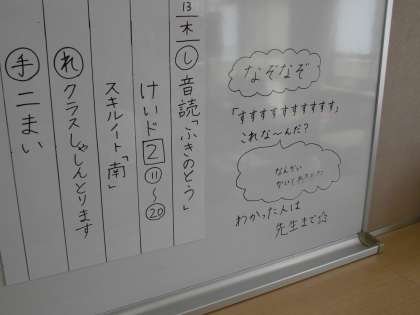 13
木
し 音読「ふきのとう」
けいド 2 ⑪〜⑳
スキルノート「南」
れ クラスしゃしんとります
手 二まい
なぞなぞ
「すすすすすすすすすす」
これな〜んだ?
なんかい
わかった人は
先生まで☆